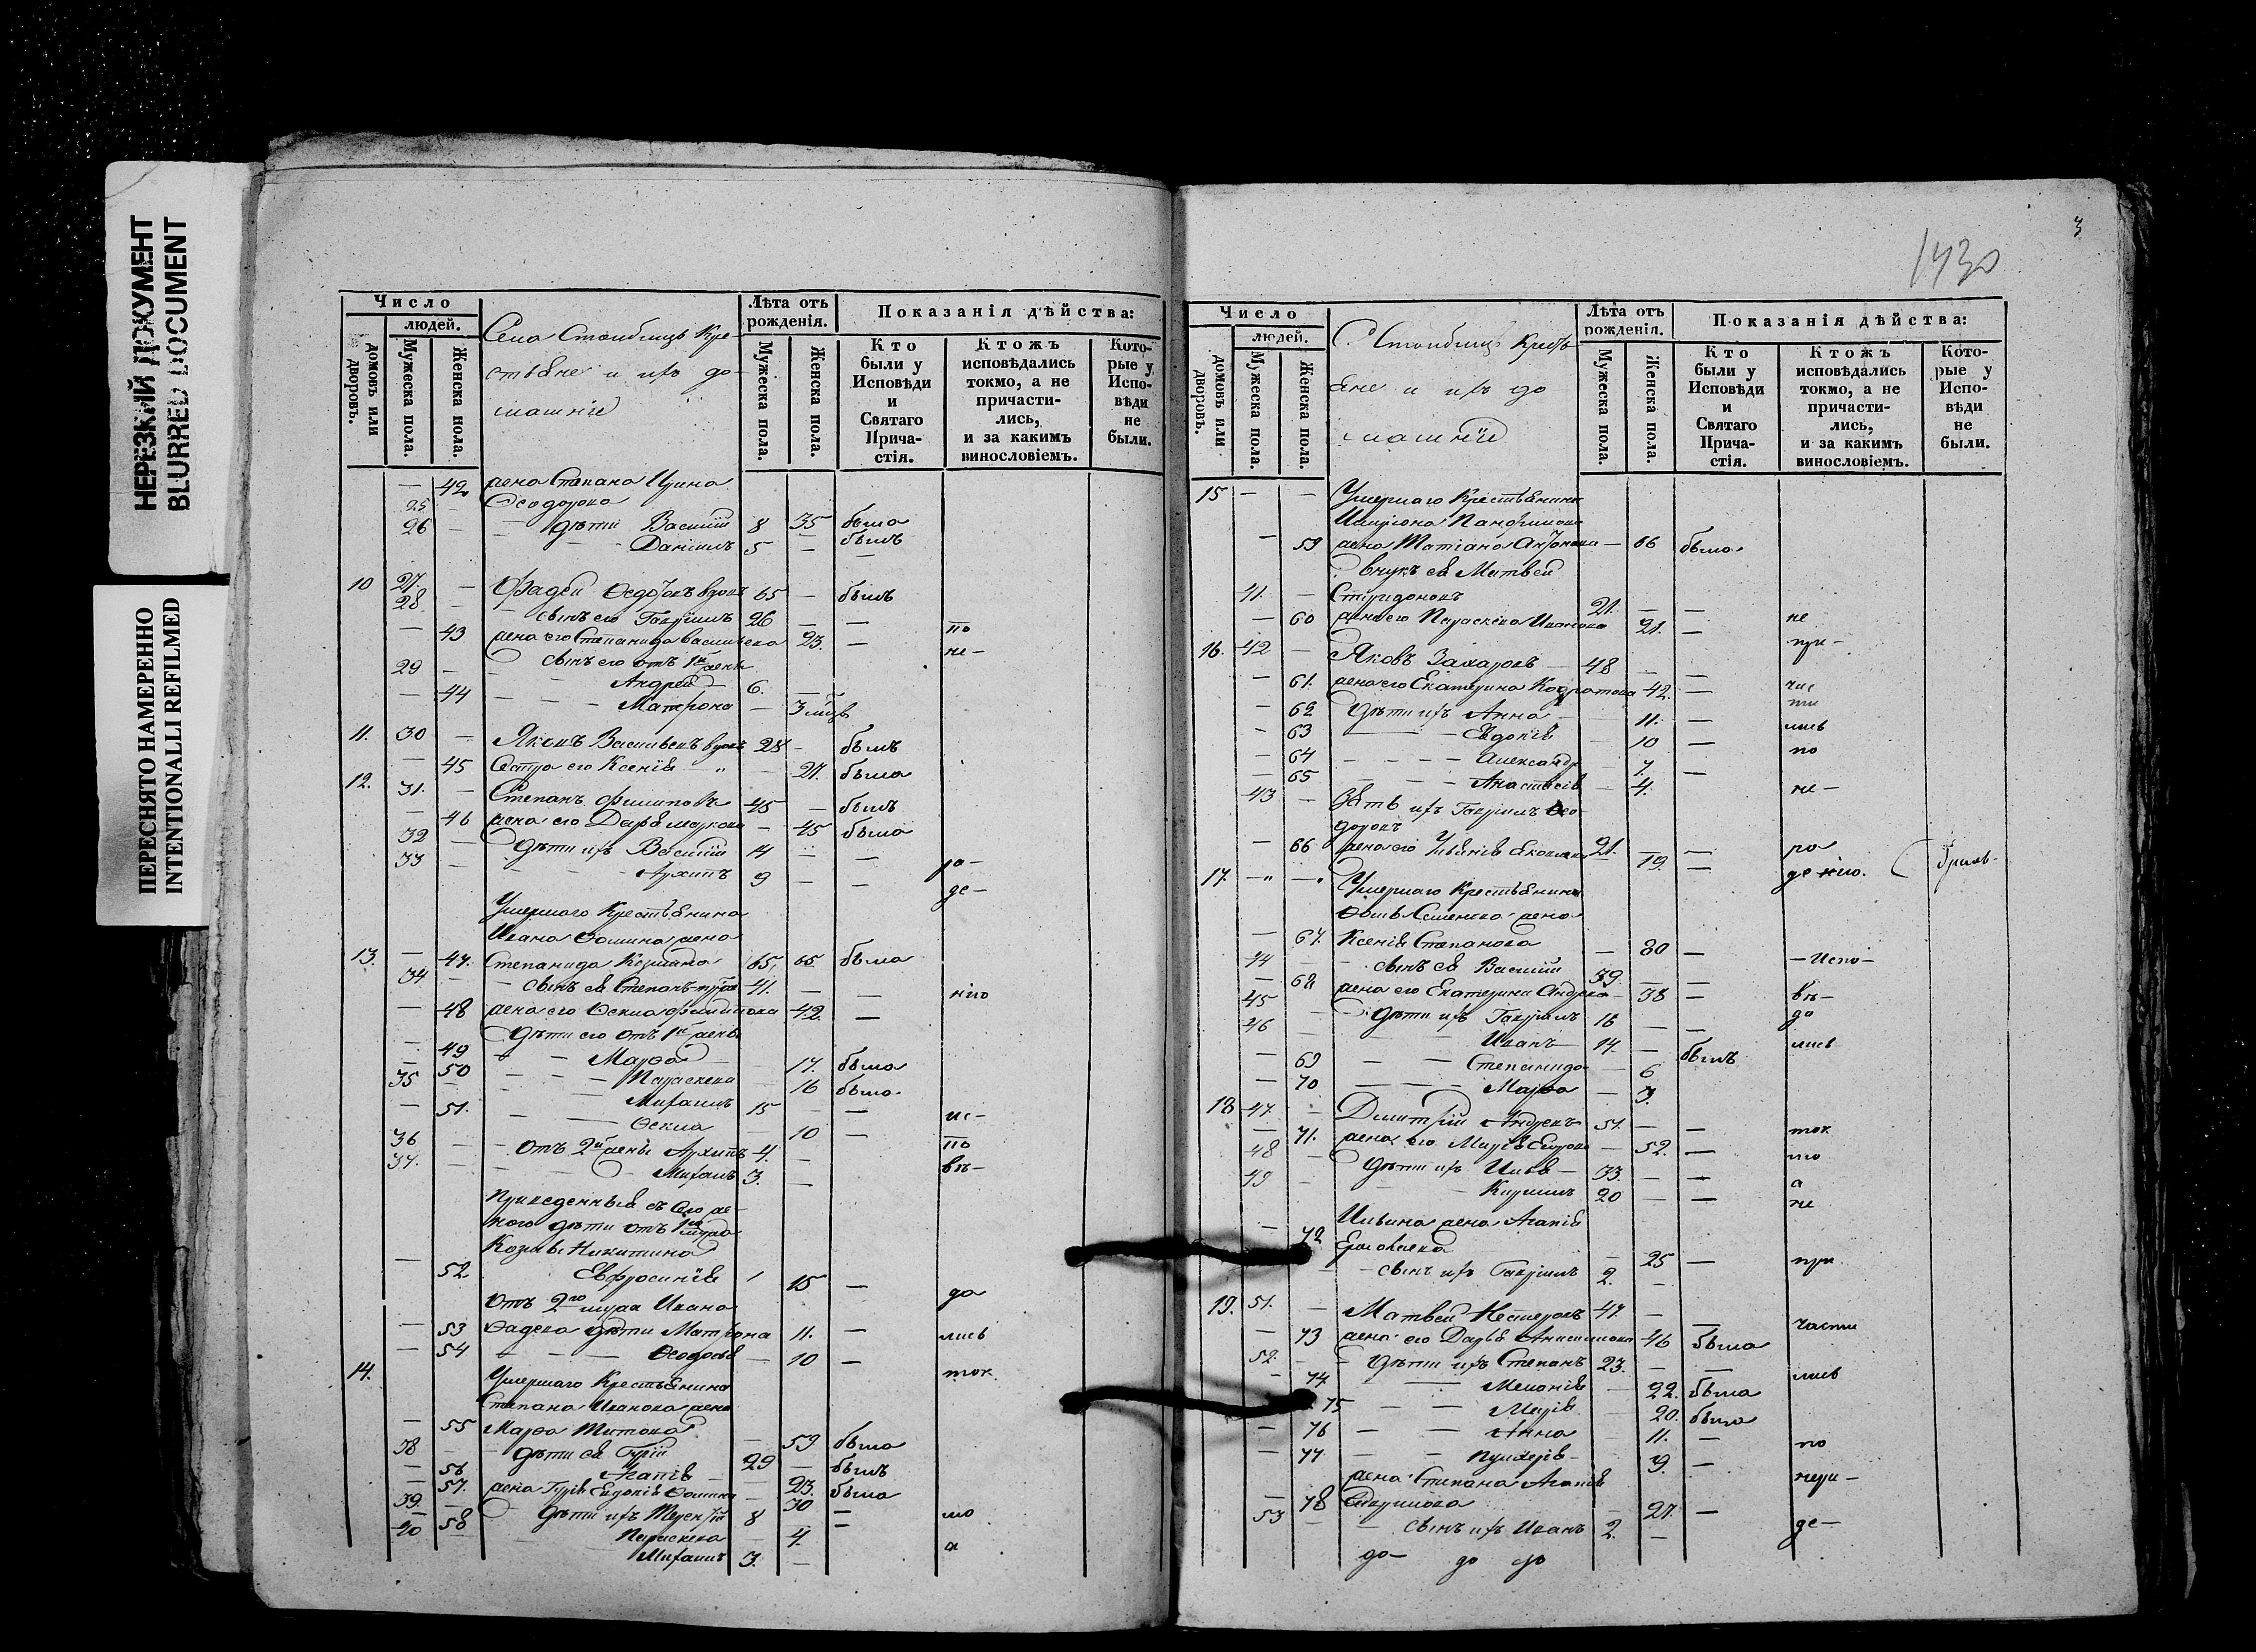 НЕРЕЗКИЙ ДОКУМЕНТ
BLURRED DOCUMENT
ПЕРЕСНЯТО НАМЕРЕННО
INTENTIONALLI REFILMED
Число
людей.
домовъ или дворовъ.
Мужеска пола.
Женска пола.
Села Столбищъ Кре-
стьяне и ихъ до-
машніе
Лѣта отъ рожденія.
Мужеска пола.
Женска пола.
Показанія дѣйства:
Кто были у Исповѣди и Святаго Прича-стія.
Ктожъ исповѣдались токмо, а не причасти-лись, и за какимъ винословіемъ.
Кото-рые у Испо-вѣди не были.
— 42 жена Степана Ирина
25 Ѳеодорова 35 была
26 — дѣти Василій 8 — былъ
Даніилъ 5 — —
10 27 — Фадей Ѳедоровъ вдовъ 65 — былъ
28 — сынъ его Гавріилъ 26 — — по
— 43 жена его Степанида Васильева 23. — не-
29 — сынъ его отъ 1й жены
Андрей 6. —
— 44 — Матрона — 3 мѣс
11. 30 — Яковъ Васильевъ вдовъ 28 — былъ
— 45 Сестра его Ксенія — 27. была
12. 31. — Степанъ Филиповъ 45 — былъ
— 46 жена его Дарья Маркова — 45 была
32 — дѣти ихъ Василій 14 — —
33 — Архипъ 9 — — ро-
де-
Умершаго Крестьянина
Ивана Ѳомина жена
13. — 47. Степанида 65 65 была
34 — сынъ ея Степанъ 41. — — нію
— 48 жена его Ѳекла 42. —
дѣти его отъ 1й жены
— 49 — Марѳа — 17. была
— 50 — Параскева 16 была
35 — Михаилъ 15 — — ис-
— 51. — Ѳекла 10 — по
36 — отъ 2й жены Архипъ 4. — вѣ-
37. — Михаилъ 3. —
Приведенныя съ его же-
ною дѣти отъ 1го мужа
Козьмы Никитина
— 52. Евфросинія 15 — да
Отъ 2го мужа Ивана
— 53 Фадева дѣти Матрона 11. — лись
— 54 — Ѳеодосья — 10 — ток
14. Умершаго Крестьянина
Степана Иванова жена
— 55 Марѳа Титова — 59 была
38 — дѣти ея Гурій 29 — былъ
— 56 Агапія — 23. была
— 57. жена Гурія Евдокія 30 —
39 — дѣти ихъ 8 — мо
— 58 Параскева — 4. —
40 — Михаилъ 3. — а
3
1430
Число
людей.
домовъ или дворовъ.
Мужеска пола.
Женска пола.
С. Столбищъ Кресть
яне и ихъ до
машніе
Лѣта отъ рожденія.
Мужеска пола.
Женска пола.
Показанія дѣйства:
Кто были у Исповѣди и Святаго Прича-стія.
Ктожъ исповѣдались токмо, а не причасти-лись, и за какимъ винословіемъ.
Кото-рые у Испо-вѣди не были.
15 — — Умершаго Крестьянина
— 59 жена Татіана Антонова — 66 была
внукъ ея Матвей
41. — Спиридоновъ 21. — —
— 60 жена его Параскева Иванова 21. — не
16. 42 — Яковъ Захаровъ 48 — — при-
— 61. жена его Екатерина 42. — час
— 62 дѣти ихъ Анна — 11. — ти
— 63 — Евдокія — 10 — лись
— 64 — Александр 7. — по
— 65 — Анастасія — 4. не-
43 — Зять ихъ Гавріилъ Ѳео-
доровъ 21. — —
— 66 жена его Яковлева 19. — ро
17. — Умершаго Крестьянина дѣнію.
Семенова жена
— 67. Ксенія Степанова — 80 —
44 — сынъ ея Василій 39. — — — Испо —
— 68 жена его Екатерина Андреева 38 — вѣ-
45 — дѣти ихъ Гавріилъ 16 — — да
46 — Иванъ 14. — былъ лись
— 69 — Степанида — 6
— 70 — Марѳа — 3.
18 47. — Димитрій Андреевъ 51. — — ток
— 71. жена его Марія Егорова — 52. — мо
48 — дѣти ихъ Илья — 33. — — а
49 — Кирилъ 20 — — не
Ильина жена Агапія
— 72 25 — при
сынъ ихъ Гавріилъ 2. —
19. 51. — Матвей Несторовъ 47. — — части
— 73 жена его Дарья Анисимова 46 была
52. — дѣти ихъ Степанъ 23. — — лись
— 74 Меланія — 22. была
75 — Марія — 20. была
— 76 — Анна — 11. — по
— 77 — Пулхерія — 9. —
жена Степана Агапія нера-
— 78 21. —
53 — сынъ ихъ Иванъ 2. — де-